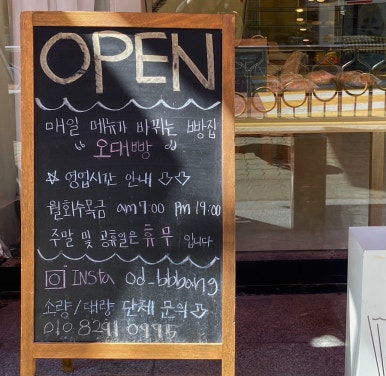 OPEN
매일 메뉴가 바뀌는 빵집
" 오대빵 "
☆ 영업시간 안내 ⇩⇩
월화수목금 am 7:00 Pm 19:00
주말 및 공휴일은 휴무 입니다
INSTA od_bbbang
소량/대량 단체 문의 ⇩
010 8291 0995